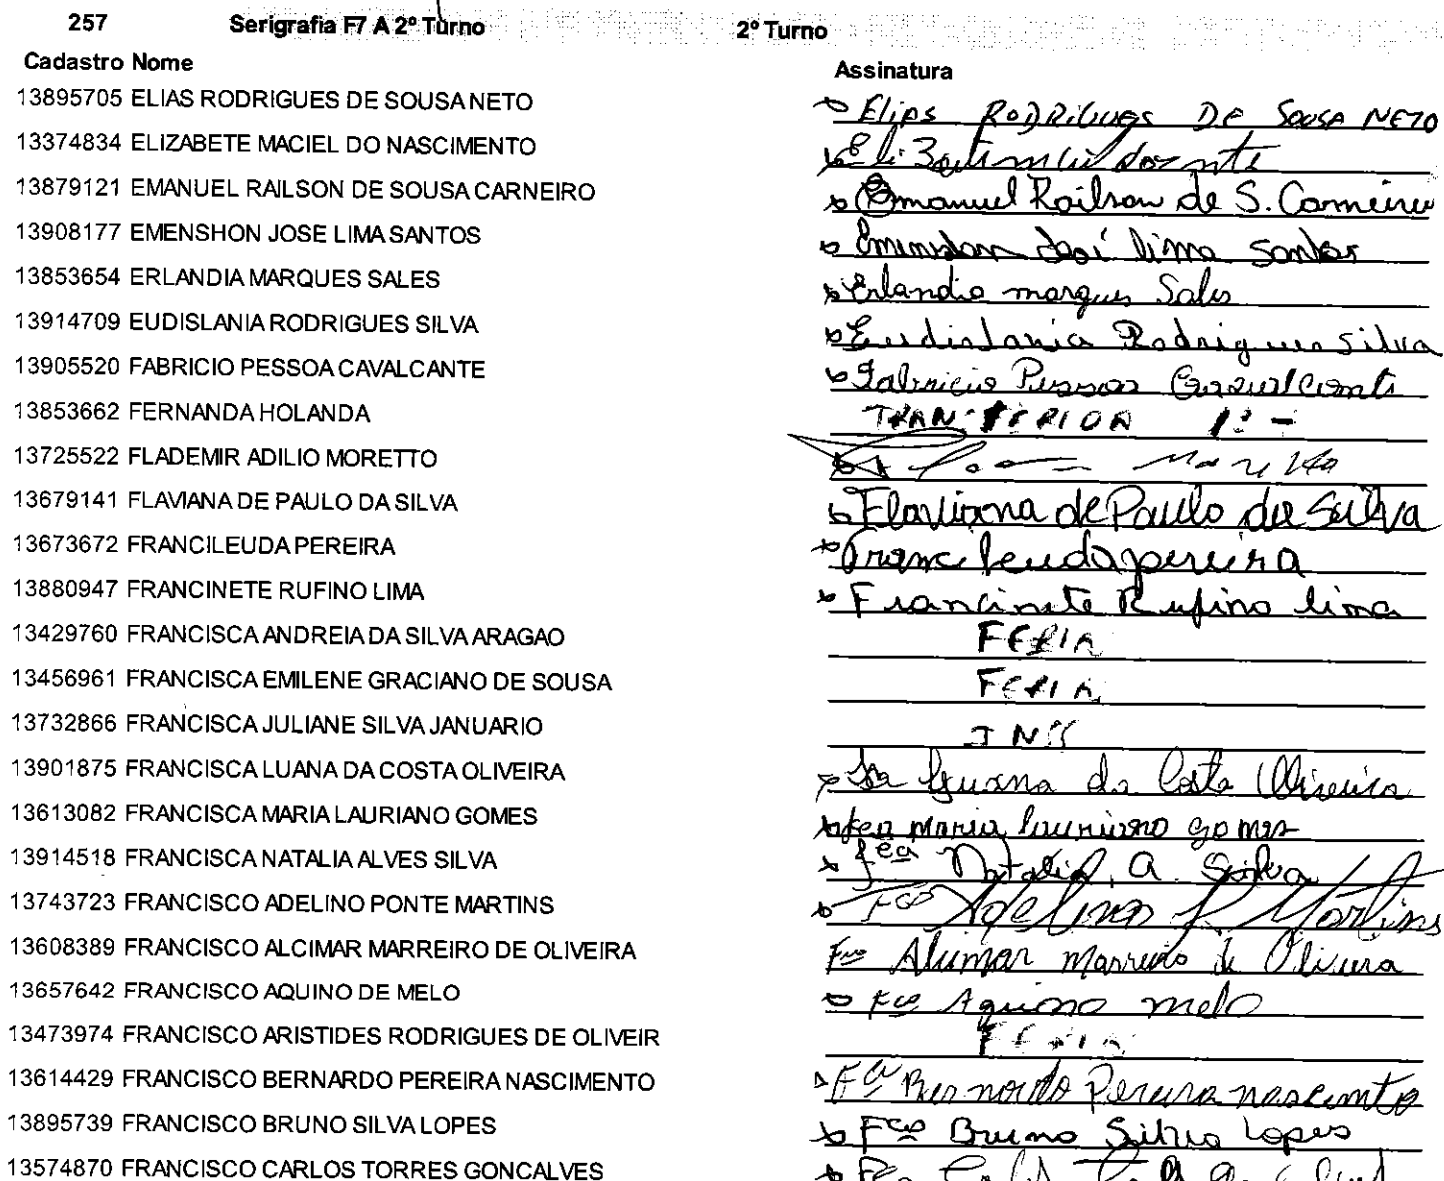 257 Serigrafia F7 A 2º Turno 2º Turno
Cadastro Nome Assinatura
13895705 ELIAS RODRIGUES DE SOUSA NETO Elias RODRIGUES DE SOUSA NETO
13374834 ELIZABETE MACIEL DO NASCIMENTO
13879121 EMANUEL RAILSON DE SOUSA CARNEIRO Emanuel Railson de S. Carneiro
13908177 EMENSHON JOSE LIMA SANTOS José lima Santos
13853654 ERLANDIA MARQUES SALES Erlandia marques Sales
13914709 EUDISLANIA RODRIGUES SILVA Eudislania Rodrigues silva
13905520 FABRICIO PESSOA CAVALCANTE Fabricio Pessoa Cavalcante
13853662 FERNANDA HOLANDA TRANSFERIDA 1º -
13725522 FLADEMIR ADILIO MORETTO Moretto
13679141 FLAVIANA DE PAULO DA SILVA Flaviana de Paulo da Silva
13673672 FRANCILEUDA PEREIRA Francileuda pereira
13880947 FRANCINETE RUFINO LIMA Francinete Rufino lima
13429760 FRANCISCA ANDREIA DA SILVA ARAGAO FERIA
13456961 FRANCISCA EMILENE GRACIANO DE SOUSA FERIA
13732866 FRANCISCA JULIANE SILVA JANUARIO INSS
13901875 FRANCISCA LUANA DA COSTA OLIVEIRA Luana da Costa Oliveira
13613082 FRANCISCA MARIA LAURIANO GOMES fca maria lauriano gomes
13914518 FRANCISCA NATALIA ALVES SILVA fca Natalia A. Silva
13743723 FRANCISCO ADELINO PONTE MARTINS Fco Adelino P. Martins
13608389 FRANCISCO ALCIMAR MARREIRO DE OLIVEIRA Fco Alcimar Marreiro de Oliveira
13657642 FRANCISCO AQUINO DE MELO Fco Aquino melo
13473974 FRANCISCO ARISTIDES RODRIGUES DE OLIVEIR FERIA
13614429 FRANCISCO BERNARDO PEREIRA NASCIMENTO Fco Bernardo Pereira nascimento
13895739 FRANCISCO BRUNO SILVA LOPES Fco Bruno Silva Lopes
13574870 FRANCISCO CARLOS TORRES GONCALVES